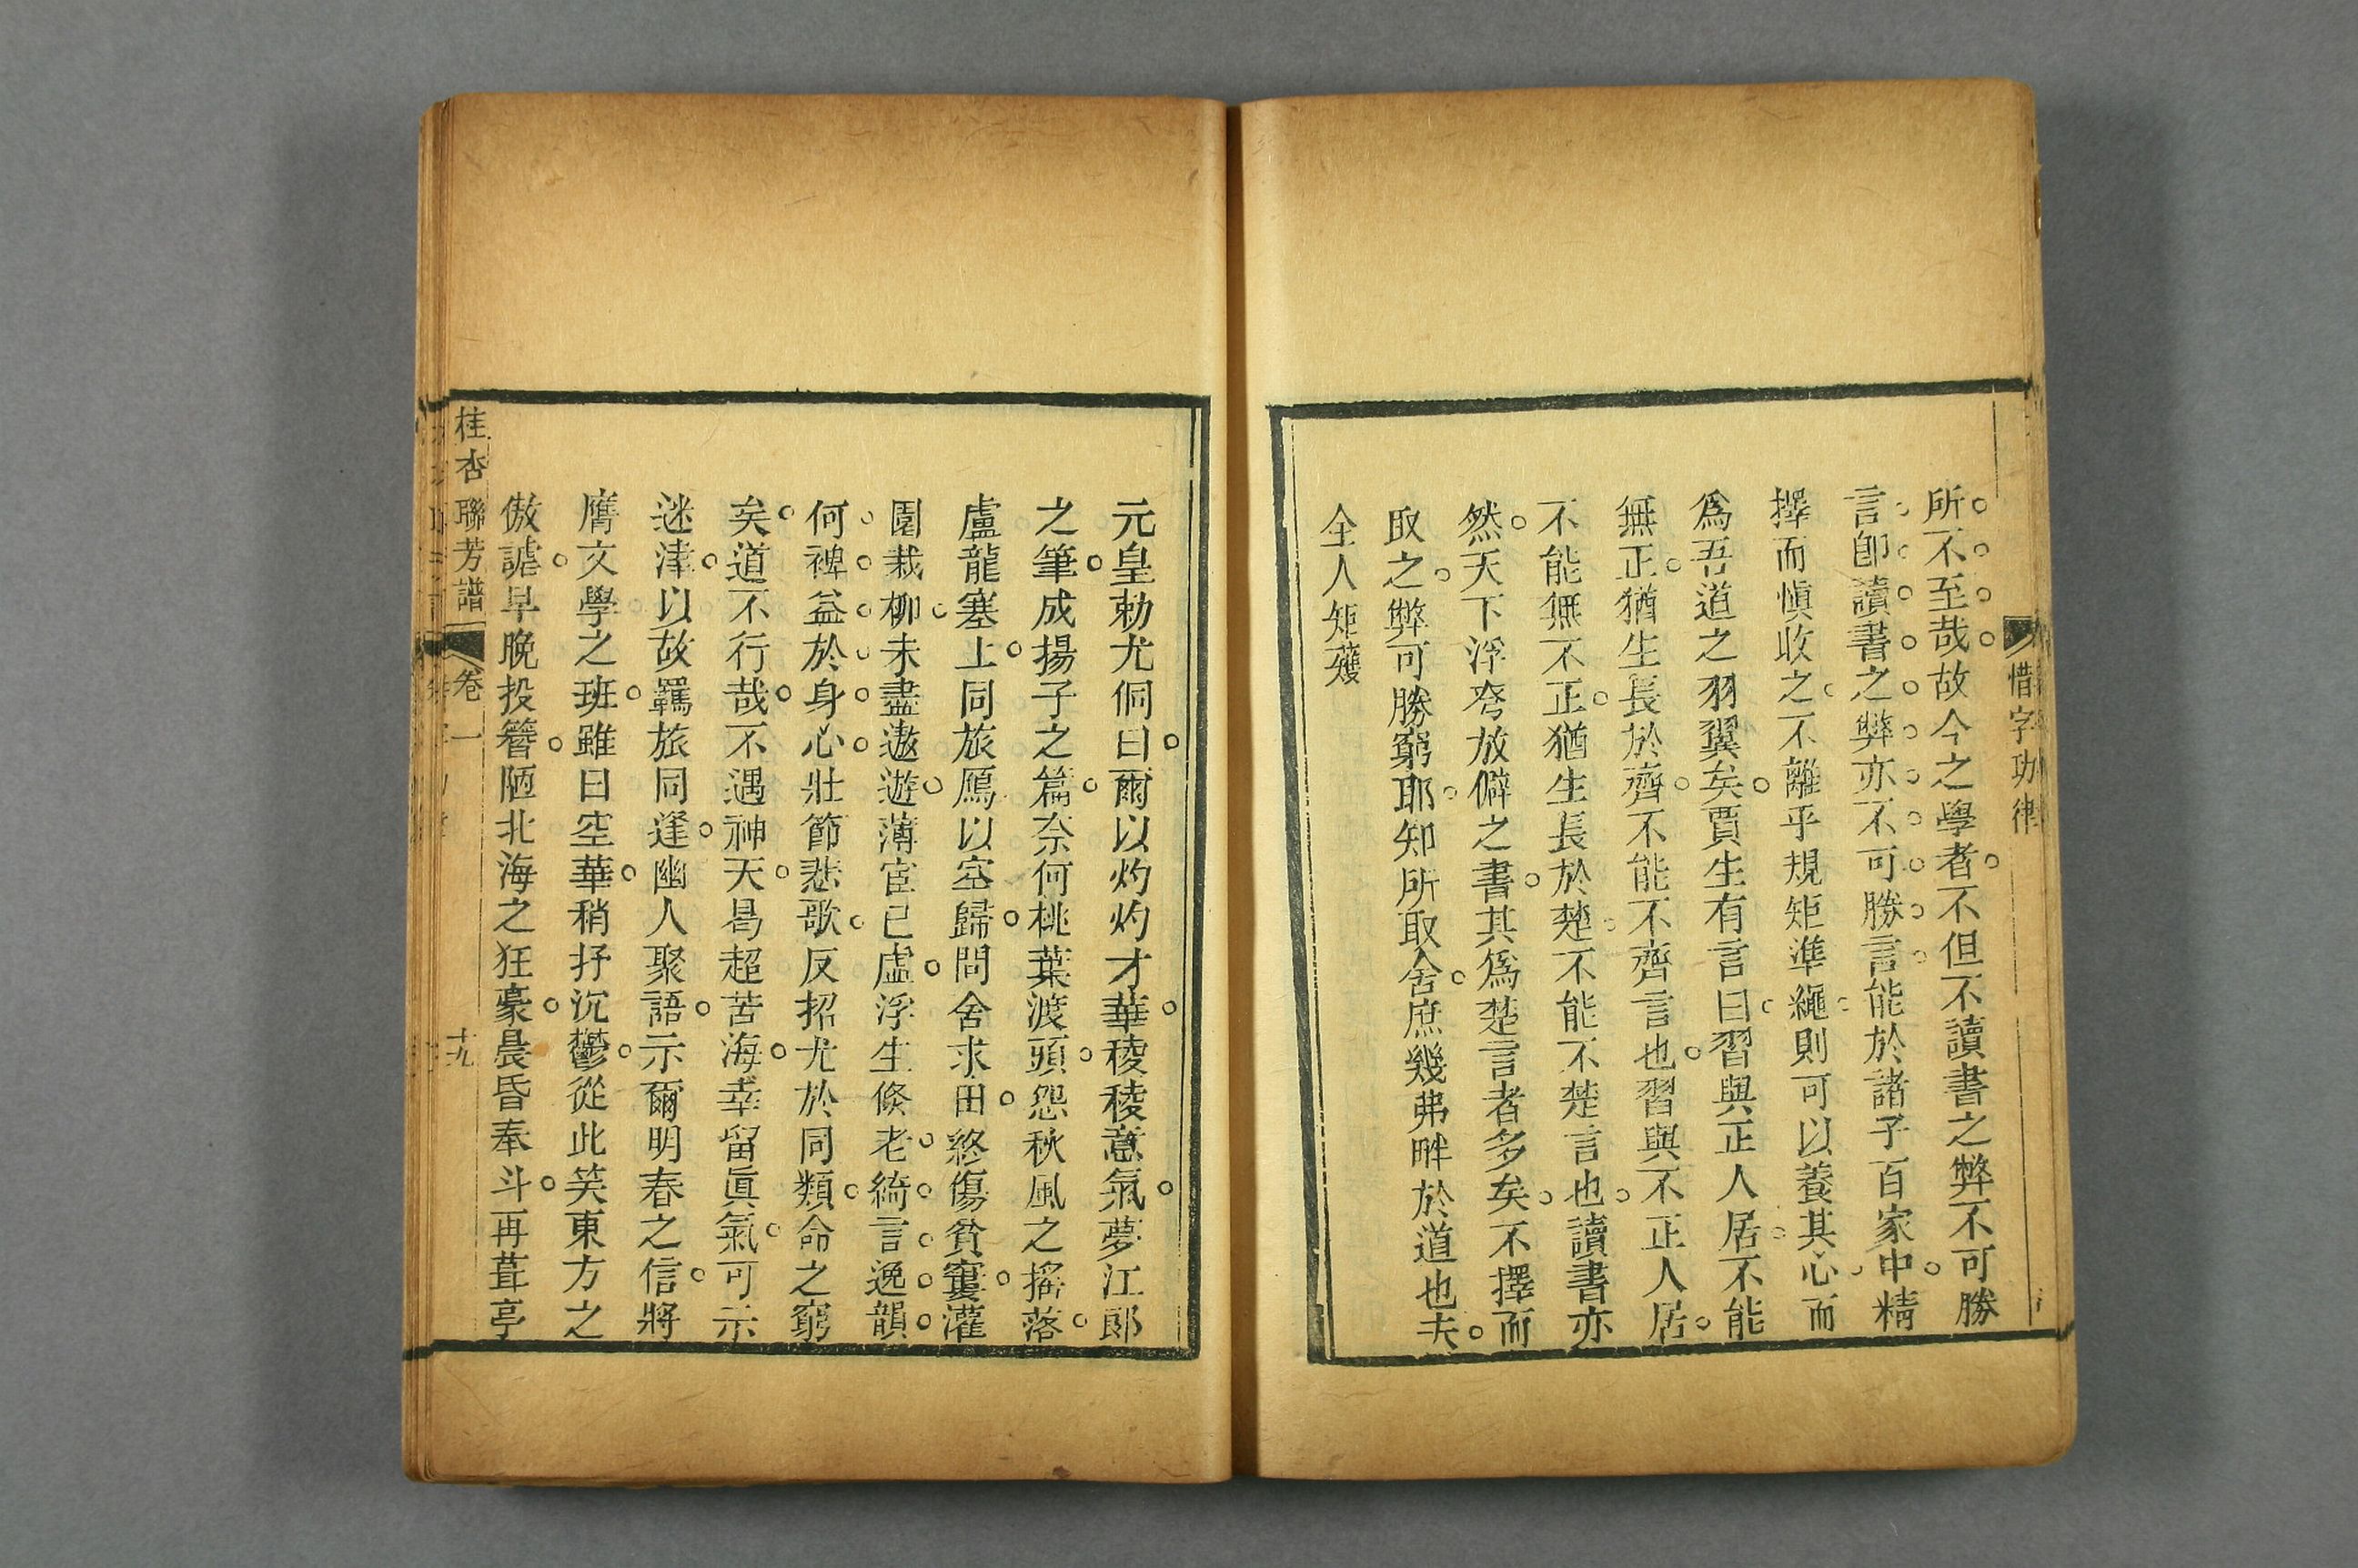 惜字功律
所不至哉故今之學者不但不讀書之弊不可勝
言卽讀書之弊亦不可勝言能於諸子百家中精
擇而愼收之不離乎規矩準繩則可以養其心而
爲吾道之羽翼矣賈生有言曰習與正人居不能
無正猶生長於齊不能不齊言也習與不正人居
不能無不正猶生長於楚不能不楚言也讀書亦
然天下浮夸放僻之書其爲楚言者多矣不擇而
取之弊可勝窮耶知所取舍庶幾弗畔於道也夫
全人矩矱
元皇勅尤侗曰爾以灼灼才華稜稜意氣夢江郎
之筆成揚子之篇奈何桃葉渡頭怨秋風之搖落
盧龍塞上同旅鴈以空歸問舍求田終傷貧窶灌
園栽柳未盡遨遊薄宦已虛浮生倏老綺言逸韻
何裨益於身心壯節悲歌反招尤於同類命之窮
矣道不行哉不遇神天曷超苦海幸留眞氣可示
迷津以故羈旅同逢幽人聚語示爾明春之信將
膺文學之班雖曰空華稍抒沉鬱從此笑東方之
傲謔早晚投簪陋北海之狂豪晨昏奉斗再葺亭
桂杏聯芳譜 卷一 十九